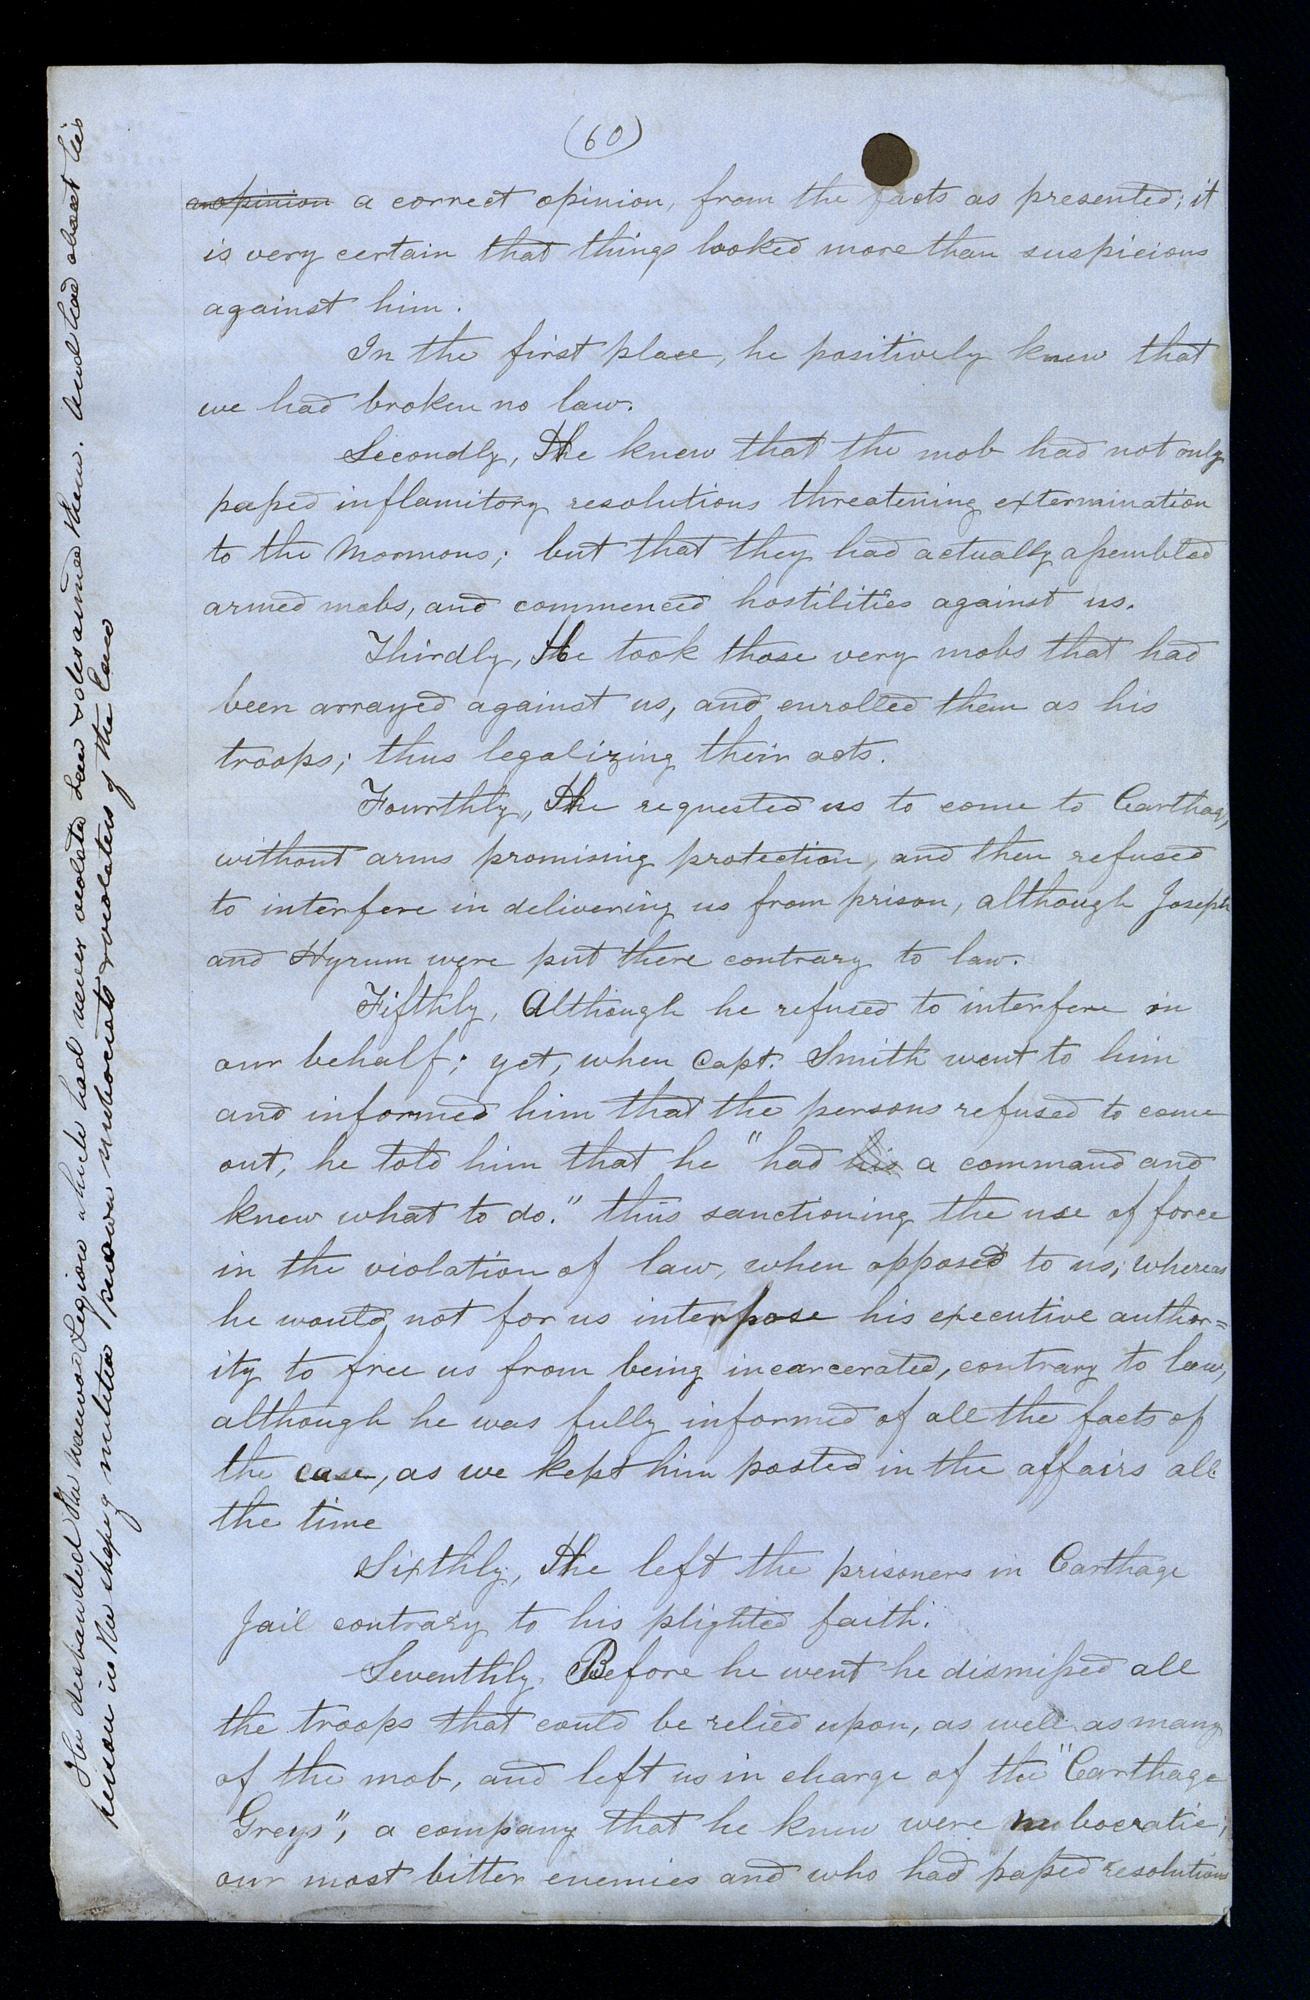 (60)
an opinion a correct opinion, from the facts as presented; it
is very certain that things looked more than suspicious
against him.
In the first place, he positively knew that
we had broken no law.
Secondly, He knew that the mob had not only
passed inflamitory resolutions threatening extermination
to the Mormons; but that they had actually assembled
armed mobs, and commenced hostilities against us.
Thirdly, He took those very mobs that had
been arrayed against us, and enrolled them as his
troops; thus legalizing their acts.
Fourthly, He requested us to come to Carthage,
without arms promising protection, and then refused
to interfere in delivering us from prison, although Joseph
and Hyrum were put there contrary to law.
Fifthly, Although he refused to interfere in
our behalf; yet, when Capt. Smith went to him
and informed him that the persons refused to come
out, he told him that he "had his a command and
knew what to do." thus sanctioning the use of force
in the violation of law, when opposed to us; whereas
he would not for us interpose his executive author=
ity to free us from being incarcerated, contrary to law,
although he was fully informed of all the facts of
the case, as we kept him posted in the affairs all
the time
Sixthly, He left the prisoners in Carthage
Jail contrary to his plighted faith.
Seventhly, Before he went he dismissed all
the troops that could be relied upon, as well as many
of the mob, and left us in charge of the "Carthage
Greys", a company that he knew were mobocratic;
our most bitter enemies and who had passed resolutions
He disbanded the nauvoo Legion which had never violated Law & disarmed them. And had about his
person in the shape of militia known mobocrats & violaters of the law